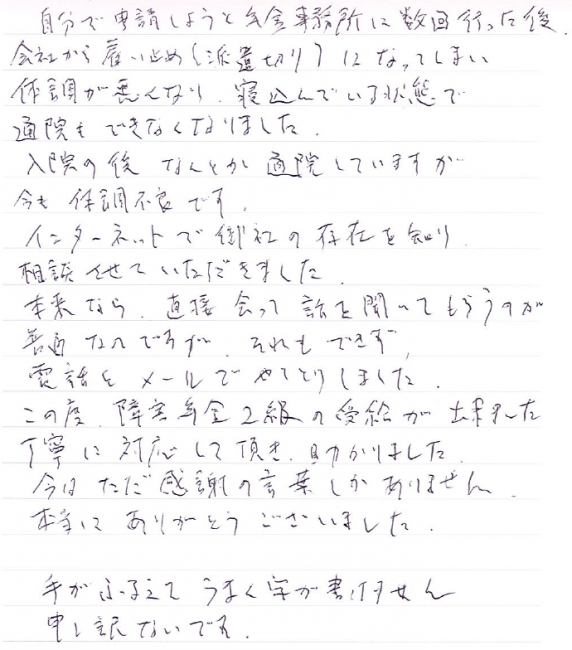 自分で申請しようと年金事務所に数回行った後、
会社から雇い止め(派遣切り)になってしまい
体調が悪くなり、寝込んでいる状態で
通院もできなくなりました。
入院の後 なんとか通院していますが
今も 体調不良です。
インターネットで御社の存在を知り
相談させていただきました。
本来なら、直接会って話を聞いてもらうのが
普通なのですが、それもできず、
電話とメールでやりとりしました。
この度、障害年金2級の受給が出来ました
丁寧に対応して頂き、助かりました。
今はただ感謝の言葉しかありません。
本当にありがとうございました。
手がふるえてうまく字が書けません
申し訳ないです。